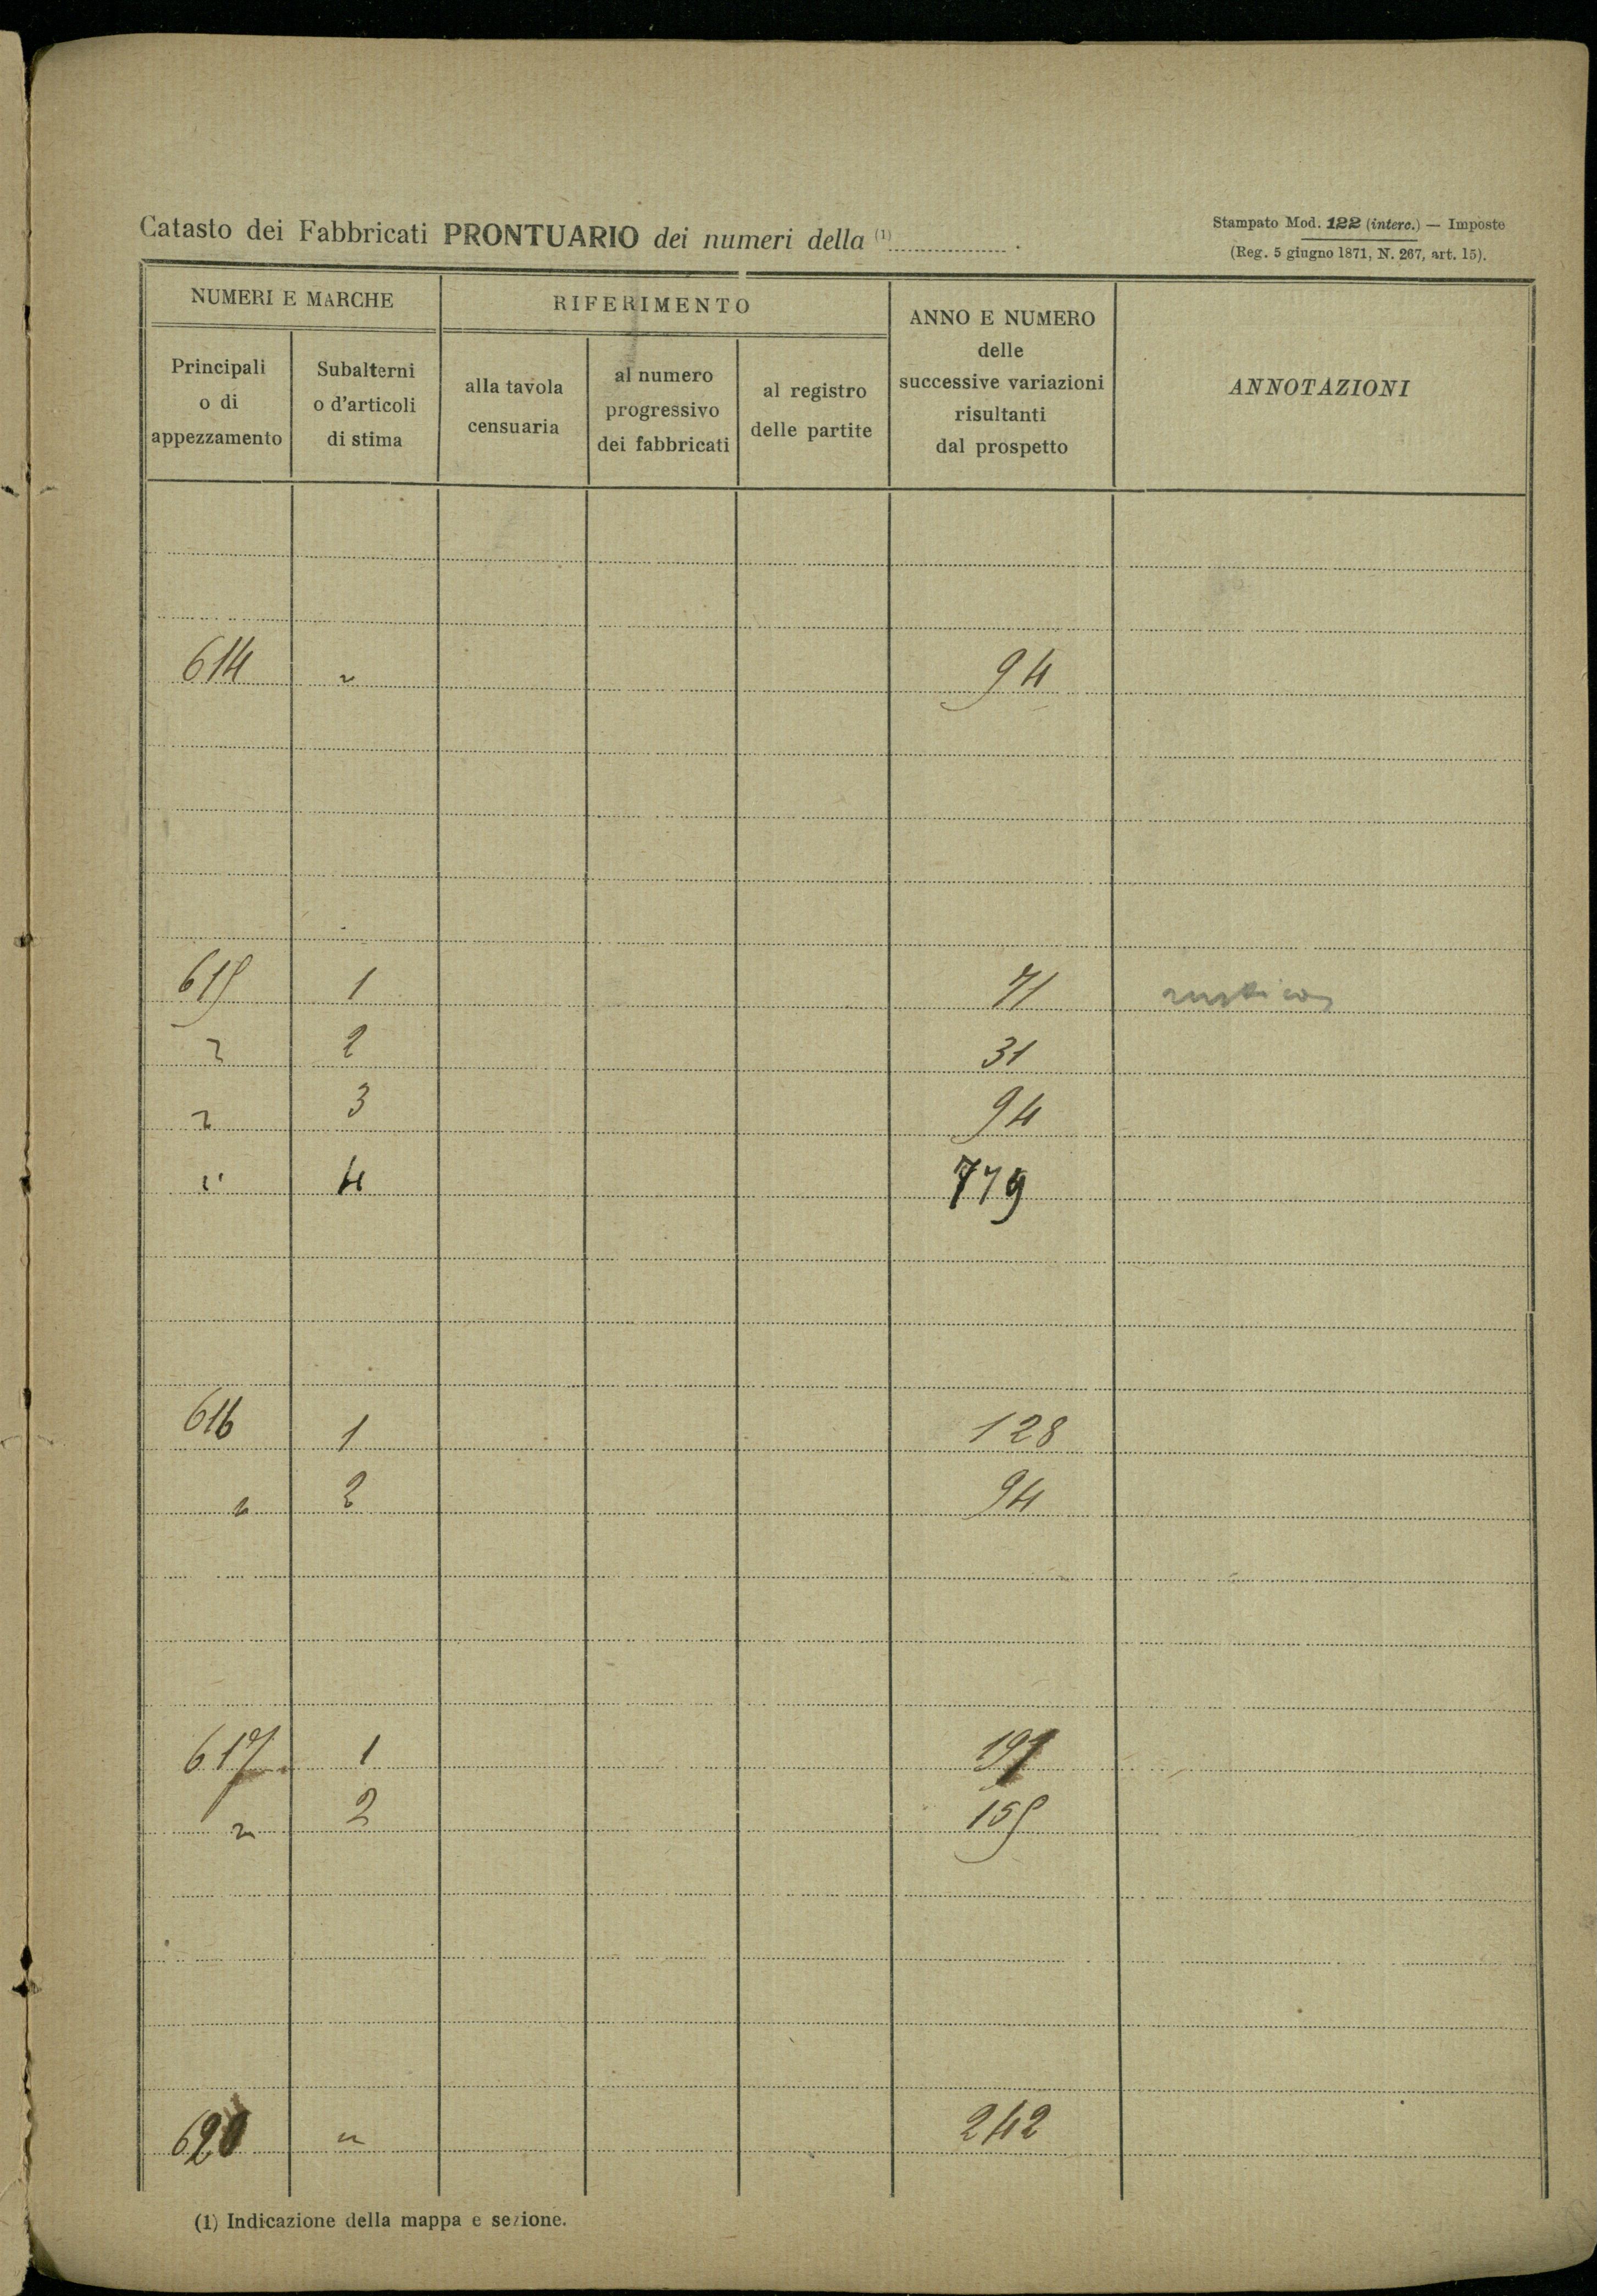 Catasto dei Fabbricati PRONTUARIO dei numeri della (1) .
Stampato Mod. 122 (interc.) — Imposte
(Reg. 5 giugno 1871, N. 267, art. 15).
NUMERI E MARCHE
Principali
o di
appezzamento
Subalterni
o d'articoli
di stima
RIFERIMENTO
alla tavola
censuaria
al numero
progressivo
dei fabbricati
al registro
delle partite
ANNO E NUMERO
delle
successive variazioni
risultanti
dal prospetto
ANNOTAZIONI
614 " 94
615 1 71
" 2 31
" 3 94
" 4 779
616 1 128
" 2 94
617 1
" 2 155
620 " 242
(1) Indicazione della mappa e sezione.